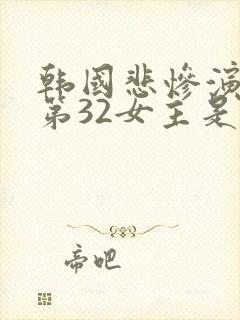 韩国悲惨演
第32女主是
帝吧